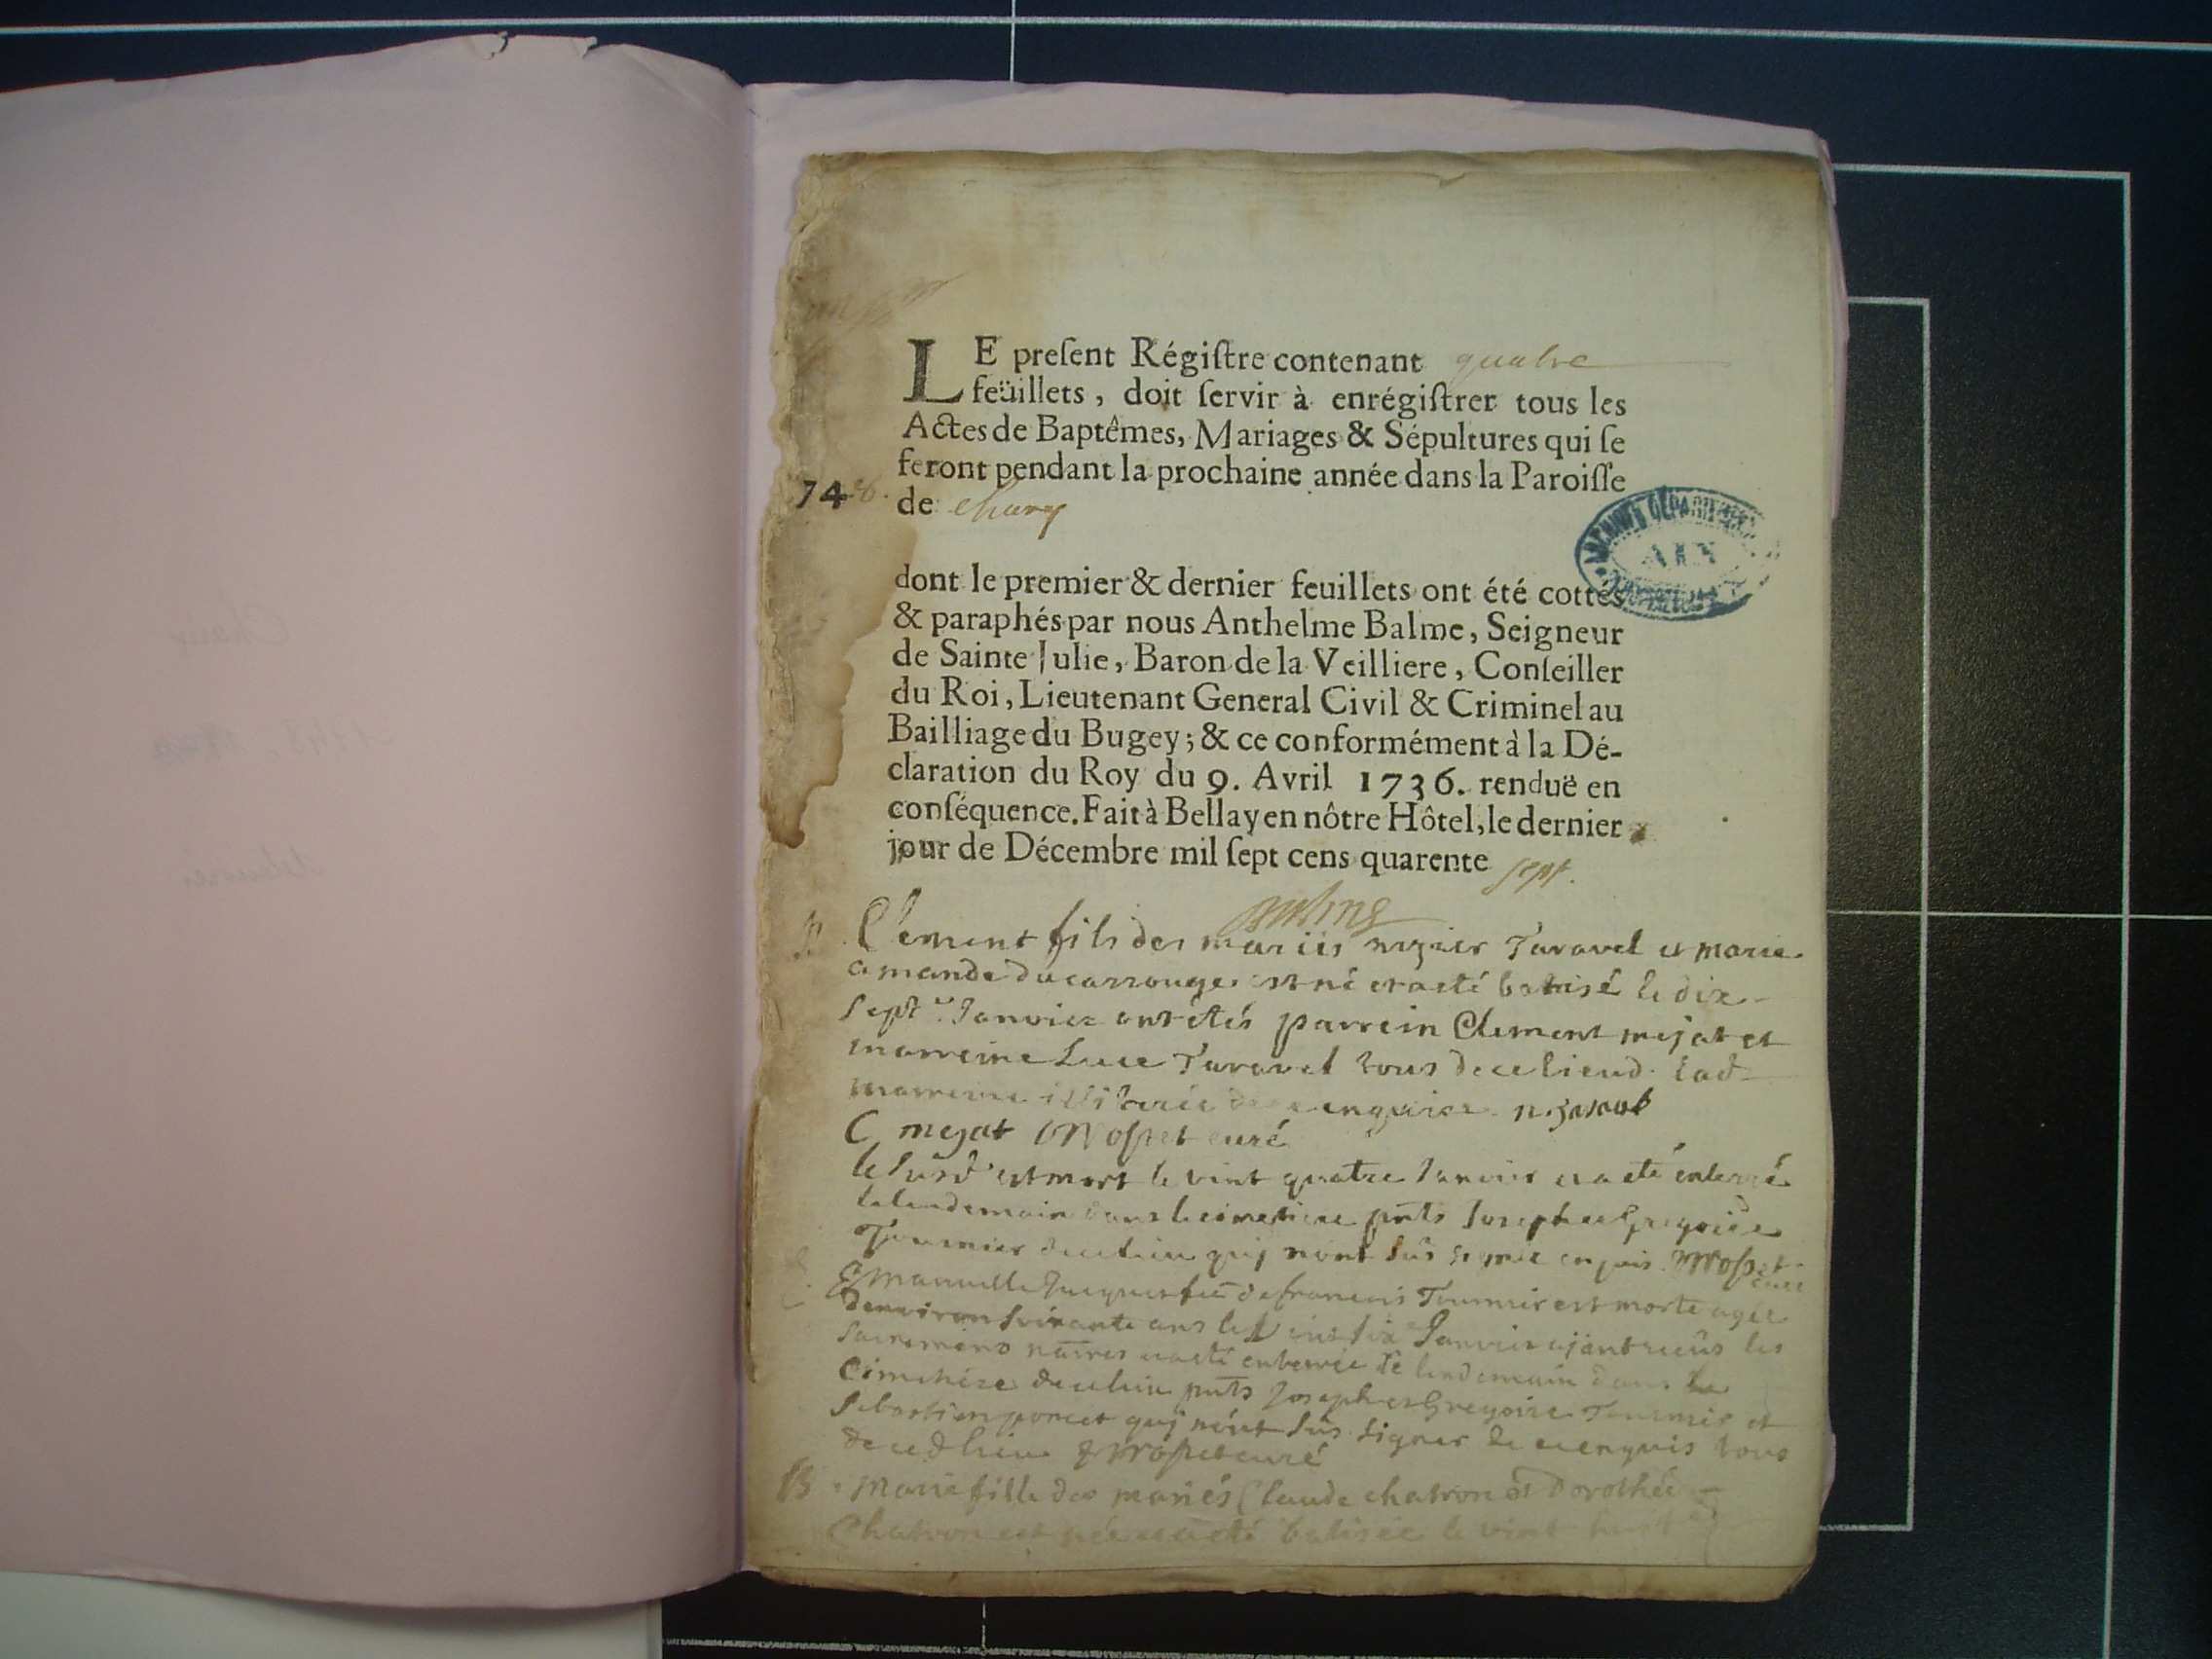 LE preſent Régiſtre contenant quatre
feüillets, doit ſervir à enrégiſtrer tous les
Actes de Baptêmes, Mariages & Sépultures qui ſe
feront pendant la prochaine année dans la Paroiſſe
748.
de
ARCHIVES DÉPARTEMENTALES
AIN
dont le premier & dernier feuillets ont été cottés
& paraphés par nous Anthelme Balme, Seigneur
de Sainte Julie, Baron de la Veilliere, Conſeiller
du Roi, Lieutenant General Civil & Criminel au
Bailliage du Bugey; & ce conformément à la Dé-
claration du Roy du 9. Avril 1736. renduë en
conſéquence. Fait à Bellay en nôtre Hôtel, le dernier
jour de Décembre mil ſept cens quarente sept.
B. Clement fils des mariés Taravel et marie
amande ducarrouge est né et a eté batisé le dix
sept Janvier ont étés parrein Clement mejat et
marreine Luce Taravel tous de ce lieu
marreine illiterée enquise
C mejat curé
le susd est mort le vint quatre Janvier et a eté enterré
le lendemain dans le cimetiere pnts Joseph et Gregoire
Tournier de ce lieu qui n'ont sus signer enquis
de francois Tournier est morte agée
d'environ soixante ans le vint six Janvier ajant reçus les
sacremens a eté enterrée le lendemain dans le
cimetiere de ce lieu pnts Joseph et Gregoire Tournier et
Sebastien poncet qui n'ont sus signer de ce enquis tous
de ced lieu curé
B. Marie fille des mariés Claude chatron et Dorothée
Chatron est née et a eté batisée le vint huit